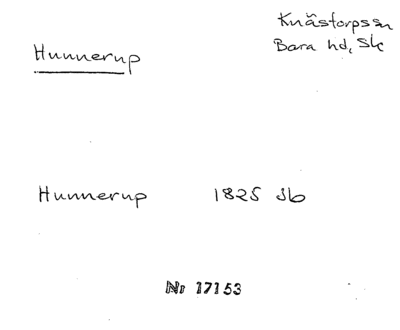 Knästorps sn
Bara hd, Sk
Hunnerup
Hunnerup 1825 Jb
Nr 17153